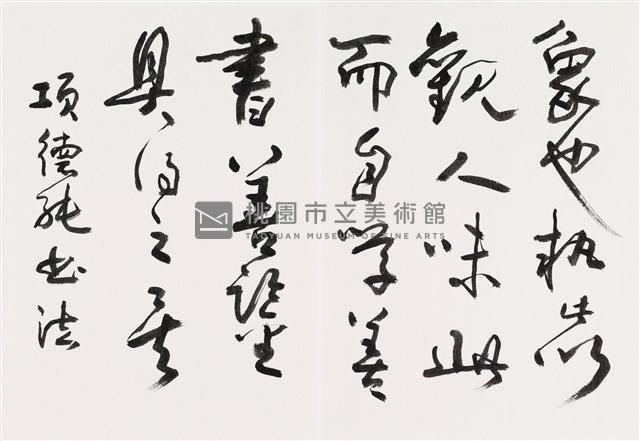 象也執此以
觀人味此
而自學善
書善鑒
具得之矣
項德純書法
桃園市立美術館
TAOYUAN MUSEUM OF FINE ARTS